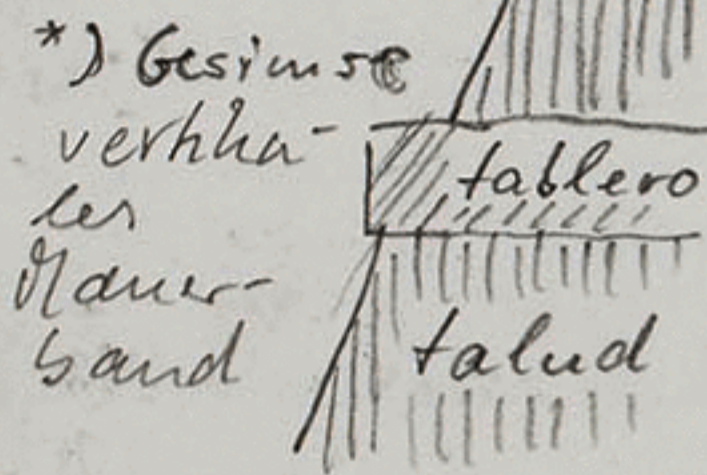 *) Gesimse
vertika-
les
Mauer-
band
tablero
talud